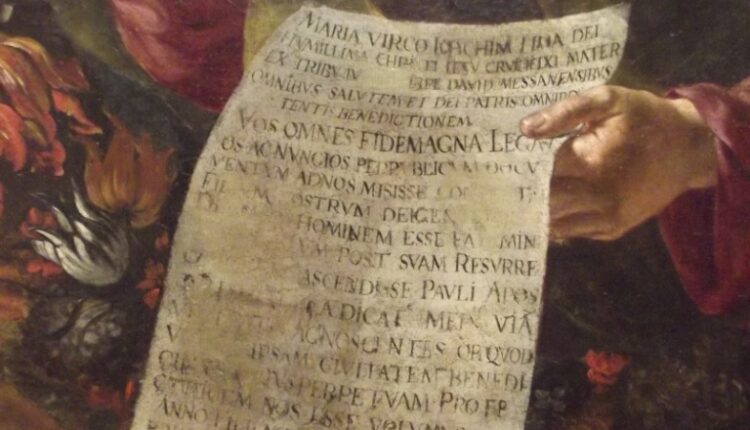 MARIA VIRCO IOACHIM FILIA DEI
HVMILLIMA CHRISTI IESV CRVCIFIXI MATER
EX TRIBV IV STIRPE DAVID MESSANENSIBVS
OMNIBVS SALVTEM ET DEI PATRIS OMNIPO
TENTIS BENEDICTIONEM
VOS OMNES FIDE MAGNA LEGAT
OS AC NVNCIOS PER PVBLICVM DOCV
MENTVM AD NOS MISISSE
FILIVM OSTRVM DEI GEN
HOMINEM ESSE FA MIN
VM POST SVAM RESVRRE
ASCENDISSE PAVLI APOS
DICAT MED VIĀ
AGNOSCENTES OB QVOD
IPSAM CIVITATEM BENEDI
PERPETVAM PROTEP
NOS ESSE VOLVM
ANNO